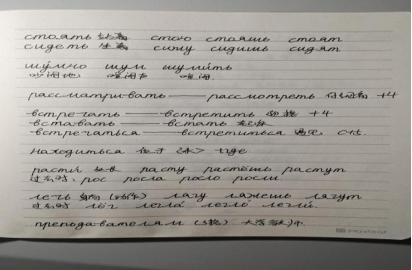 стоять 站着 стою стоишь стоят
сидеть 坐着 сижу сидишь сидят
шумно шум шумить
吵闹地 喧闹声 喧闹
рассматривать —— рассмотреть +4
встречать —— встретить 迎接 +4
вставать —— встать
встречаться —— встретиться 遇见 с+5.
находиться 位于 +где
расти расту растёшь растут
过去时: рос росла росло росли
лечь лягу ляжешь лягут
过去时 лёг легла легло легли.
преподавателям